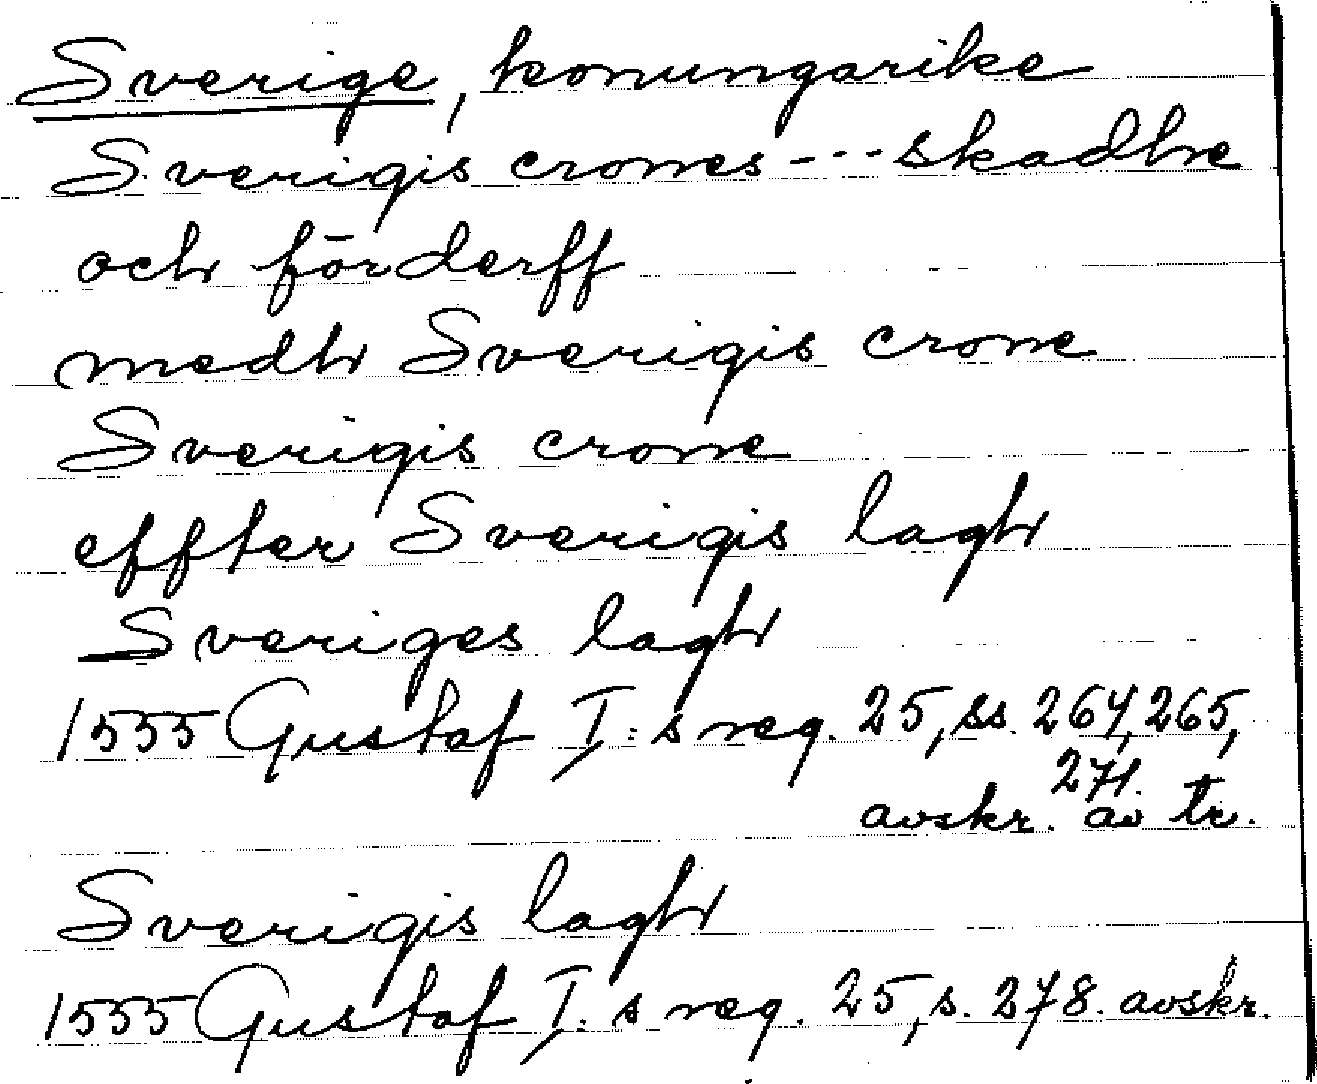 Sverige, konungarike
Sverigis crones --- skadhe
och förderff
medh Sverigis crone
Sverigis crone
effter Sverigis lagh
Sveriges lagh
1555 Gustaf I:s reg. 25, ss. 264, 265,
271.
avskr. av tr.
Sverigis lagh
1555 Gustaf I:s reg. 25, s. 278. avskr.